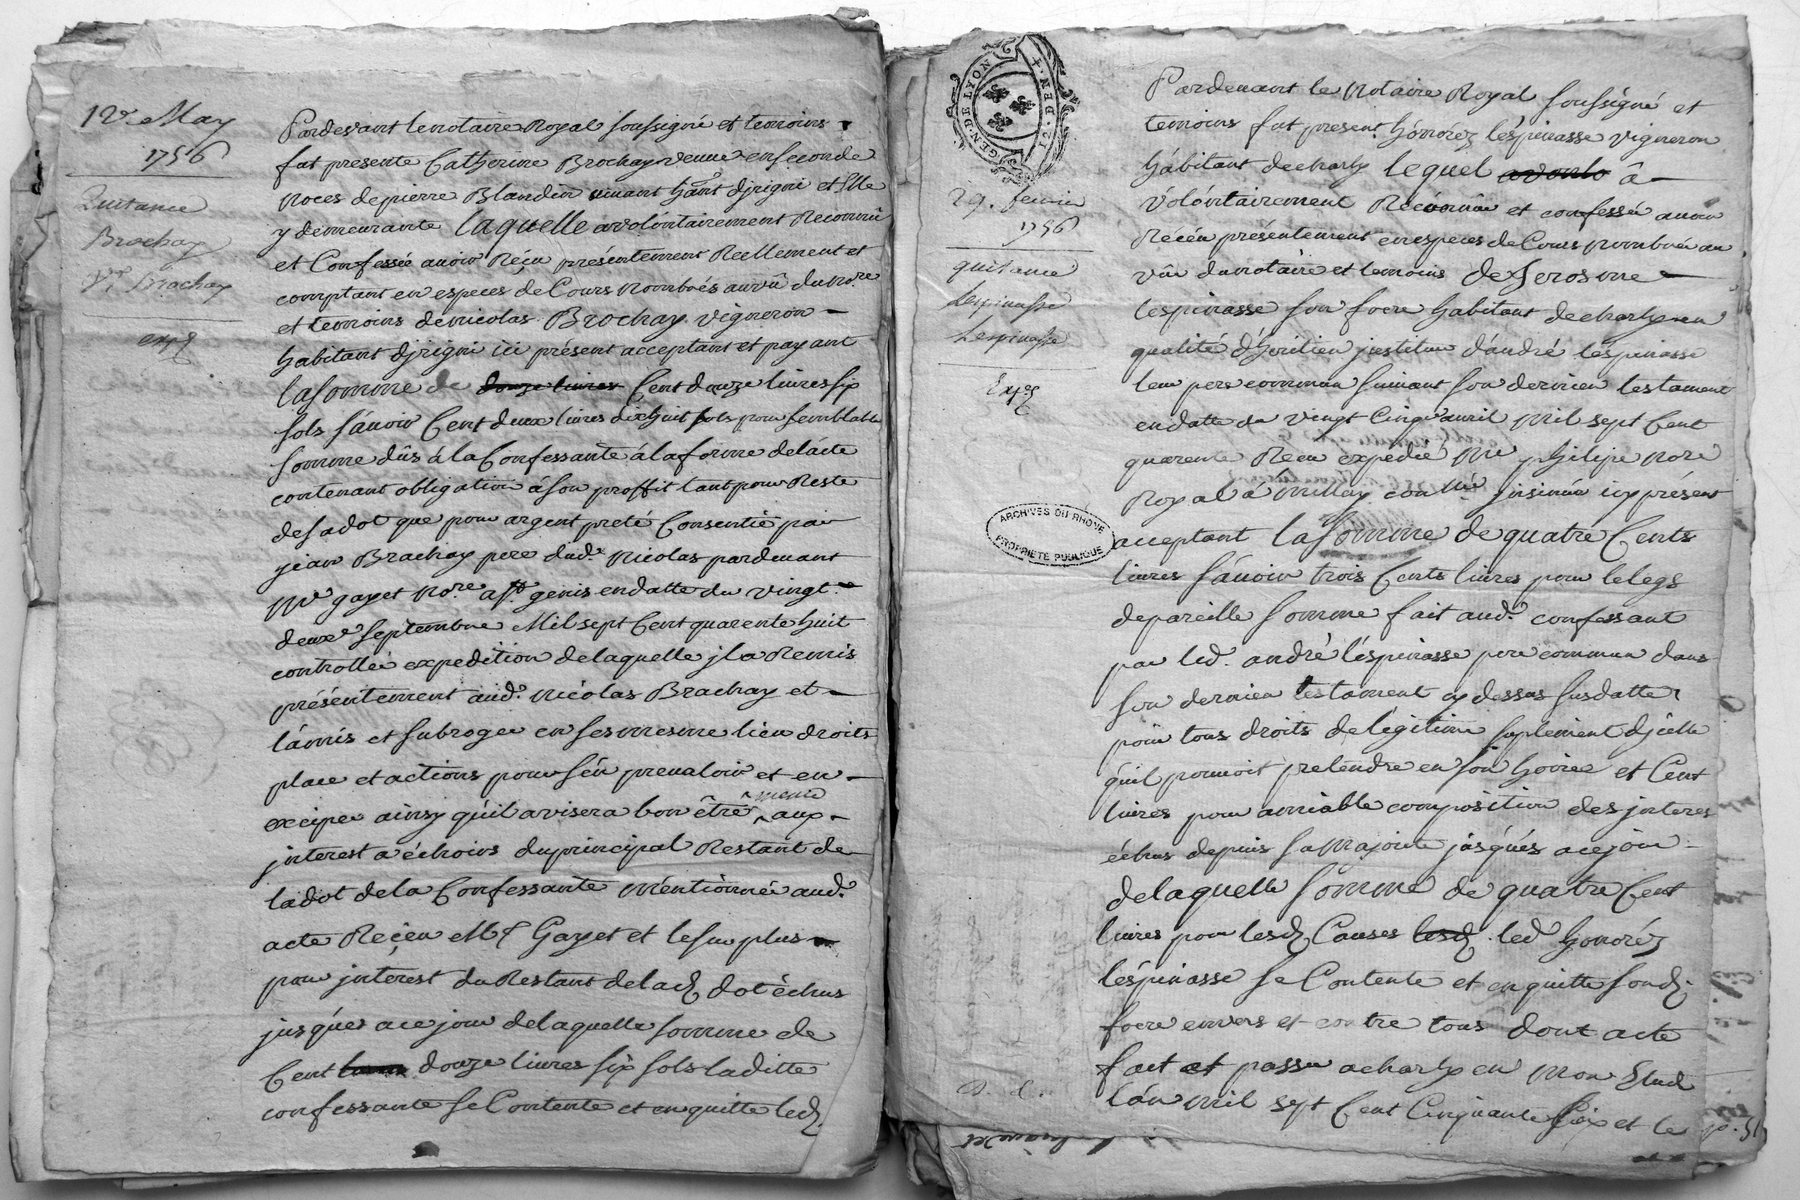 12e May
1756
Quitance
Brochay
Brachay
exp
Pardevant le notaire Royal soussigné et temoins
fut presente Catherine Brochay veuve en seconde
noces de pierre Blandin vivant hant d'jrigni et Elle
y demeurante laquelle a volontairement Reconnu
et Confessé avoir Réçu présentement Reellement et
comptant en especes de Cours nombrés au vû du nore
et temoins de nicolas Brochay vigneron
habitant d'jrigni ici présent acceptant et payant
la somme de douze livres Cent douze livres six
sols sávoir Cent deux livres dix huit sols pour semblable
somme dûs á la Confessante á la forme de l'acte
contenant obligation á son proffit tant pour Reste
de sa dot que pour argent preté Consentie par
jean Brachay pere dud. nicolas pardevant
Me gayet nore a st genis en datte du vingt
deuxe septembre Mil sept Cent quarente huit
controllée expedition de laquelle jl a Remis
présentement aud. nicolas Brachay et
l'á mis et subrogée en ses mesme lieu droits
place et actions pour s'én prevaloir et en
exciper ainsy qu'il avisera bon être meme aux
jnterest a échoirs du principal Restant de
la dot de la Confessante mentionnée aud.
acte Reçeu Me Gayet et le surplus
pour jnterest du Restant de lad dot échus
jusqúes a ce jour de laquelle somme de
Cent douze livres six sols laditte
confessante se Contente et en quitte led
GEN. DE LYON
29. fevrier
1756
quitance
Lespinasse
Lespinasse
Exp
ARCHIVES DU RHONE
PROPRIETE PUBLIQUE
Pardevant le Notaire Royal soussigné et
temoins fut present honoréz léspinasse vigneron
hábitant de charly lequel a voulo â
vólóntairement Réconnu et confessé avoir
Récéu présentement en especes de Cours nombrée au
vûe du notaire et temoins de Jerosme
lespinasse son frere habitant de charly en
qualité d'héritier jnstitue d'andré léspinasse
leur pere commun suivant son dernier testament
en datte du vingt Cinq avril mil sept Cent
quarente Receu expedié Me philipe nore
Royal á millay conllé jnsinué icy présent
acceptant la somme de quatre Cents
livres sávoir trois Cents livres pour le legs
de pareille somme fait aud. confessant
par led. andré léspinasse pere commun dans
son dernier testament cy dessus susdatte
pour tous droits de légitime suplement d'jcelle
qu'il pouvoit pretendre en son hoirie et Cent
livres pour amiable composition des jnterest
échus depuis sa majorite jusqúés a ce jour
de laquelle somme de quatre Cent
livres pour lesd. Causes lesd. led honoréz
léspinasse se Contente et en quitte sond.
frere envers et contre tous dont acte
fait et passé a charly en mon Etude
l'án mil sept Cent Cinquante Six et le